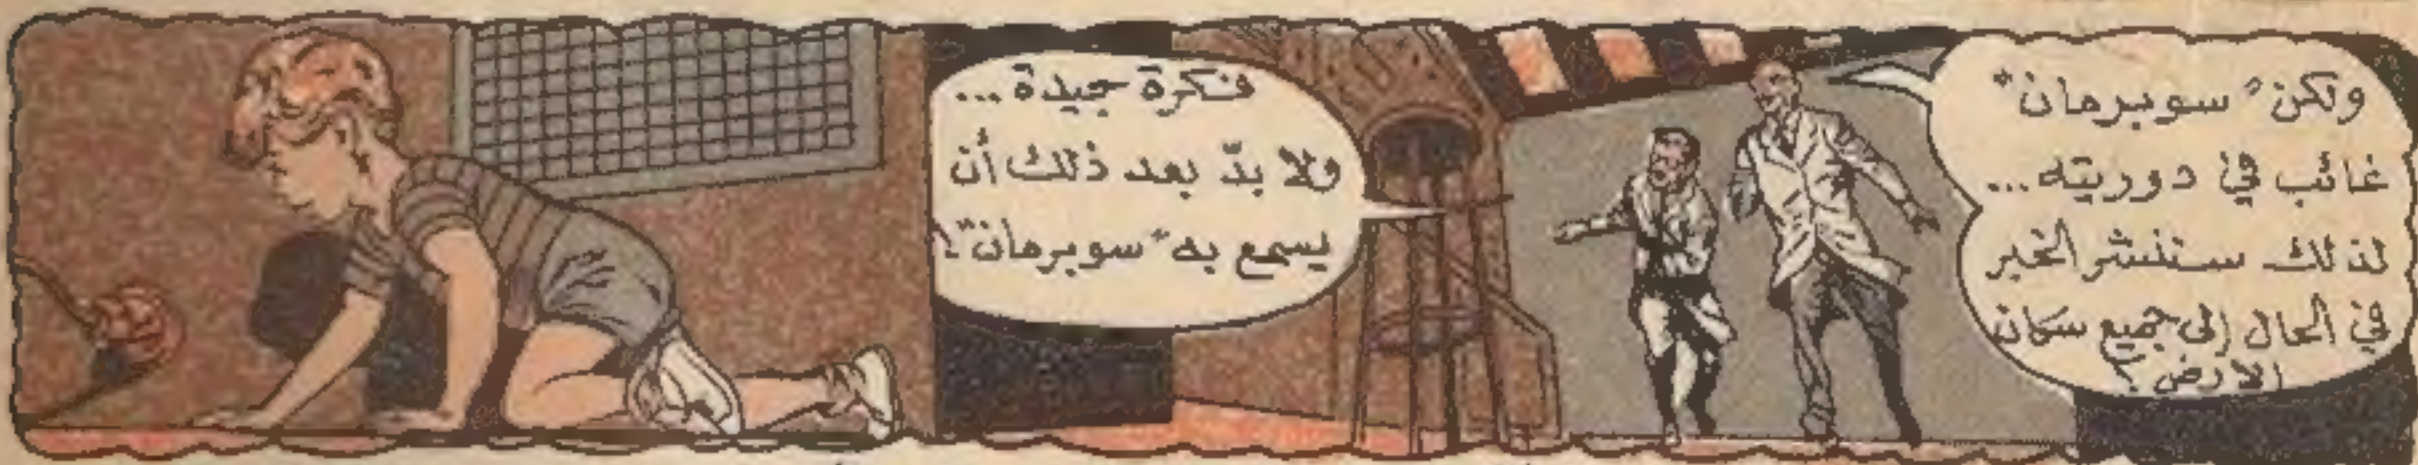 ولكن "سوبرمان"
غائب في دوريته...
لذلك سننشر الخبر
في الحال إلى جميع سكان
الأرض؟
فكرة جيدة...
ولا بدّ بعد ذلك أن
يسمع به "سوبرمان"!